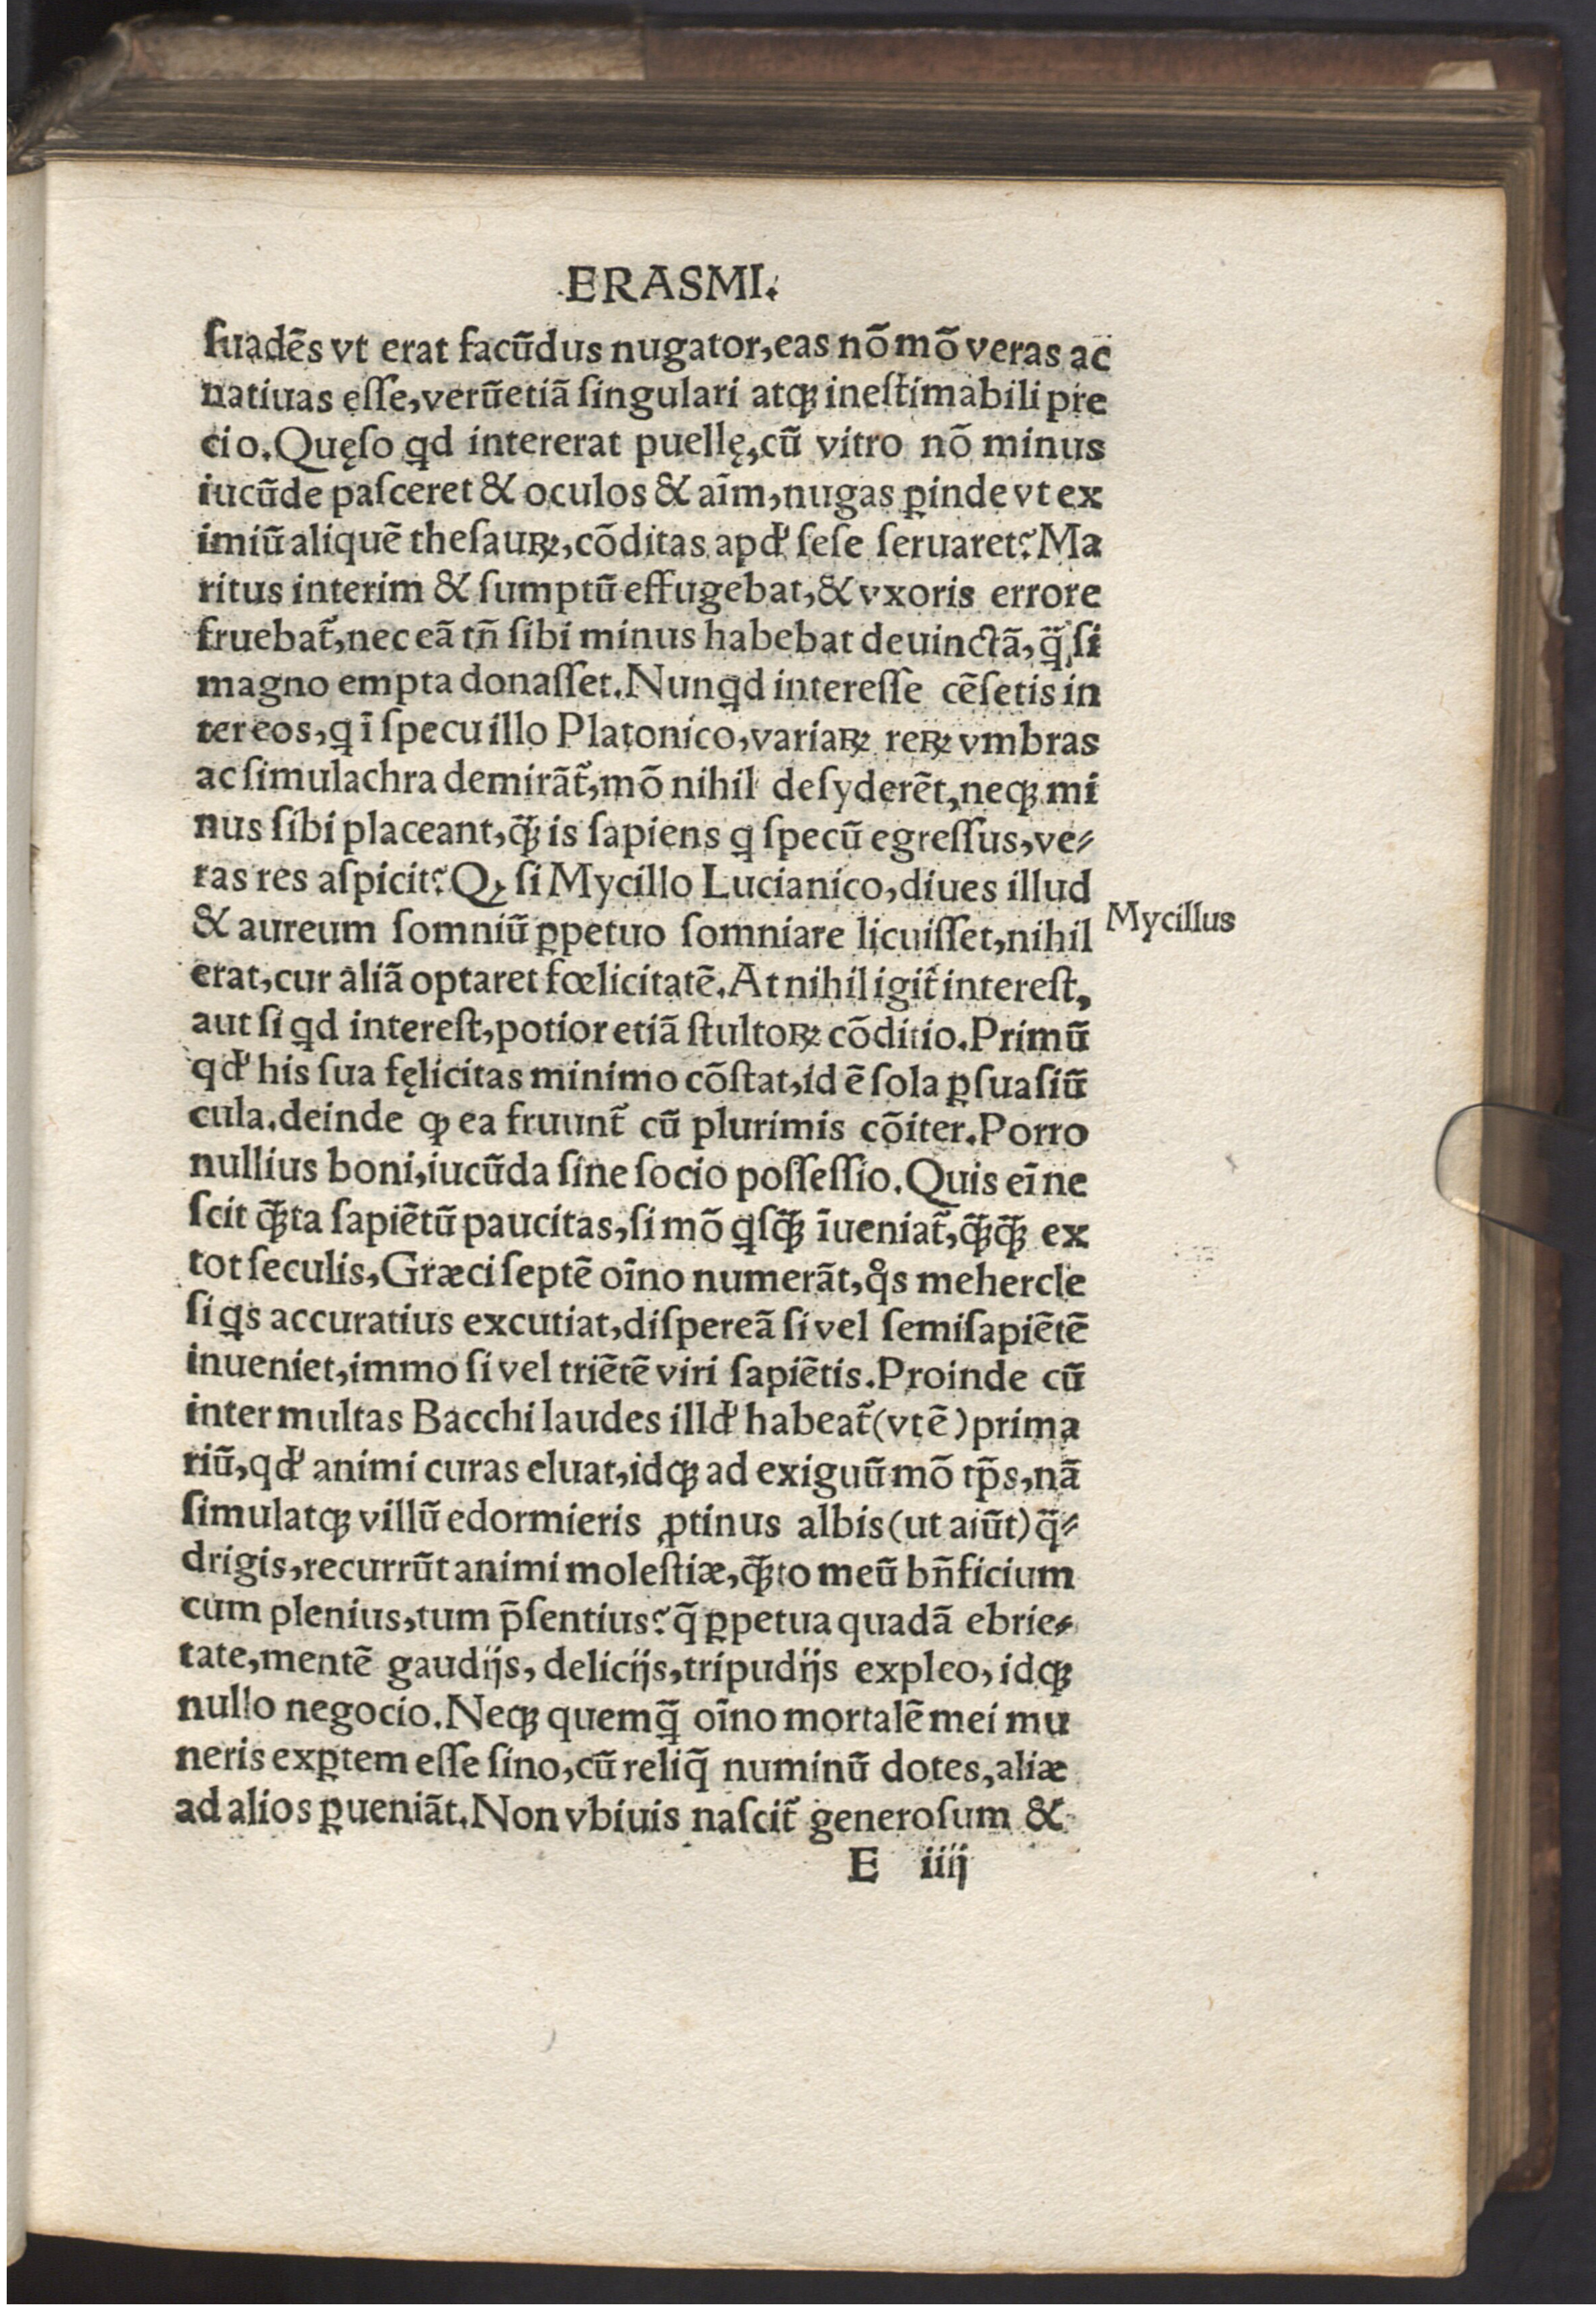 ERASMI.
ſuadẽs vt erat facũdus nugator,eas nõ mõ veras ac
natiuas eſſe,verũetiã ſingulari atqꝫ ineſtimabili pre
cio.Quęſo qd intererat puellę,cũ vitro nõ minus
iucũde paſceret & oculos & aĩm,nugas ꝑinde vt ex
imiũ aliquẽ theſauꝝ,cõditas apď ſeſe ſeruaret?Ma
ritus interim & ſumptũ effugebat,& vxoris errore
fruebat᷑,nec eã tñ ſibi minus habebat deuinctã,q̃ ſi
magno empta donaſſet.Nunꝗd intereſſe cẽſetis in
ter eos,ꝗ ĩ ſpecu illo Platonico,variaꝝ reꝝ vmbras
ac ſimulachra demirãt᷑,mõ nihil deſyderẽt,neqꝫ mi
nus ſibi placeant,q̃ꝫ is ſapiens ꝗ ſpecũ egreſſus,ve⸗
ras res aſpicit?Qꝫ ſi Mycillo Lucianico,diues illud
& aureum ſomniũ ꝑpetuo ſomniare licuiſſet,nihil
Mycillus
erat,cur aliã optaret fœlicitatẽ.At nihil igit᷑ intereſt,
aut ſi ꝗd intereſt,potior etiã ſtultoꝝ cõditio.Primũ
qď his ſua fęlicitas minimo cõſtat,id ẽ ſola ꝑſuaſiũ
cula.deinde ꝙ ea fruunt᷑ cũ plurimis cõiter.Porro
nullius boni,iucũda ſine ſocio poſſeſſio.Quis eĩ ne
ſcit q̃ꝫta ſapiẽtũ paucitas,ſi mõ ꝗſq̃ꝫ ĩueniat᷑,q̃ꝫq̃ꝫ ex
tot ſeculis,Græci ſeptẽ oĩno numerãt,qͦs mehercle
ſi ꝗs accuratius excutiat,diſpereã ſi vel ſemiſapiẽtẽ
inueniet,immo ſi vel triẽtẽ viri ſapiẽtis.Proinde cũ
inter multas Bacchi laudes illď habeat᷑(vt ẽ)prima
riũ,qď animi curas eluat,idqꝫ ad exiguũ mõ tp̃s,nã
ſimulatqꝫ villũ edormieris ꝓtinus albis(ut aiũt)q̃⸗
drigis,recurrũt animi moleſtiæ,q̃ꝫto meũ bñficium
cum plenius,tum p̃ſentius?q̃ ꝑpetua quadã ebrie⸗
tate,mentẽ gaudijs,delicijs,tripudijs expleo,idqꝫ
nullo negocio.Neqꝫ quemq̃ oĩno mortalẽ mei mu
neris exꝑtem eſſe ſino,cũ reliq̃ numinũ dotes,aliæ
ad alios ꝑueniãt.Non vbiuis naſcit᷑ generoſum &
E iiij